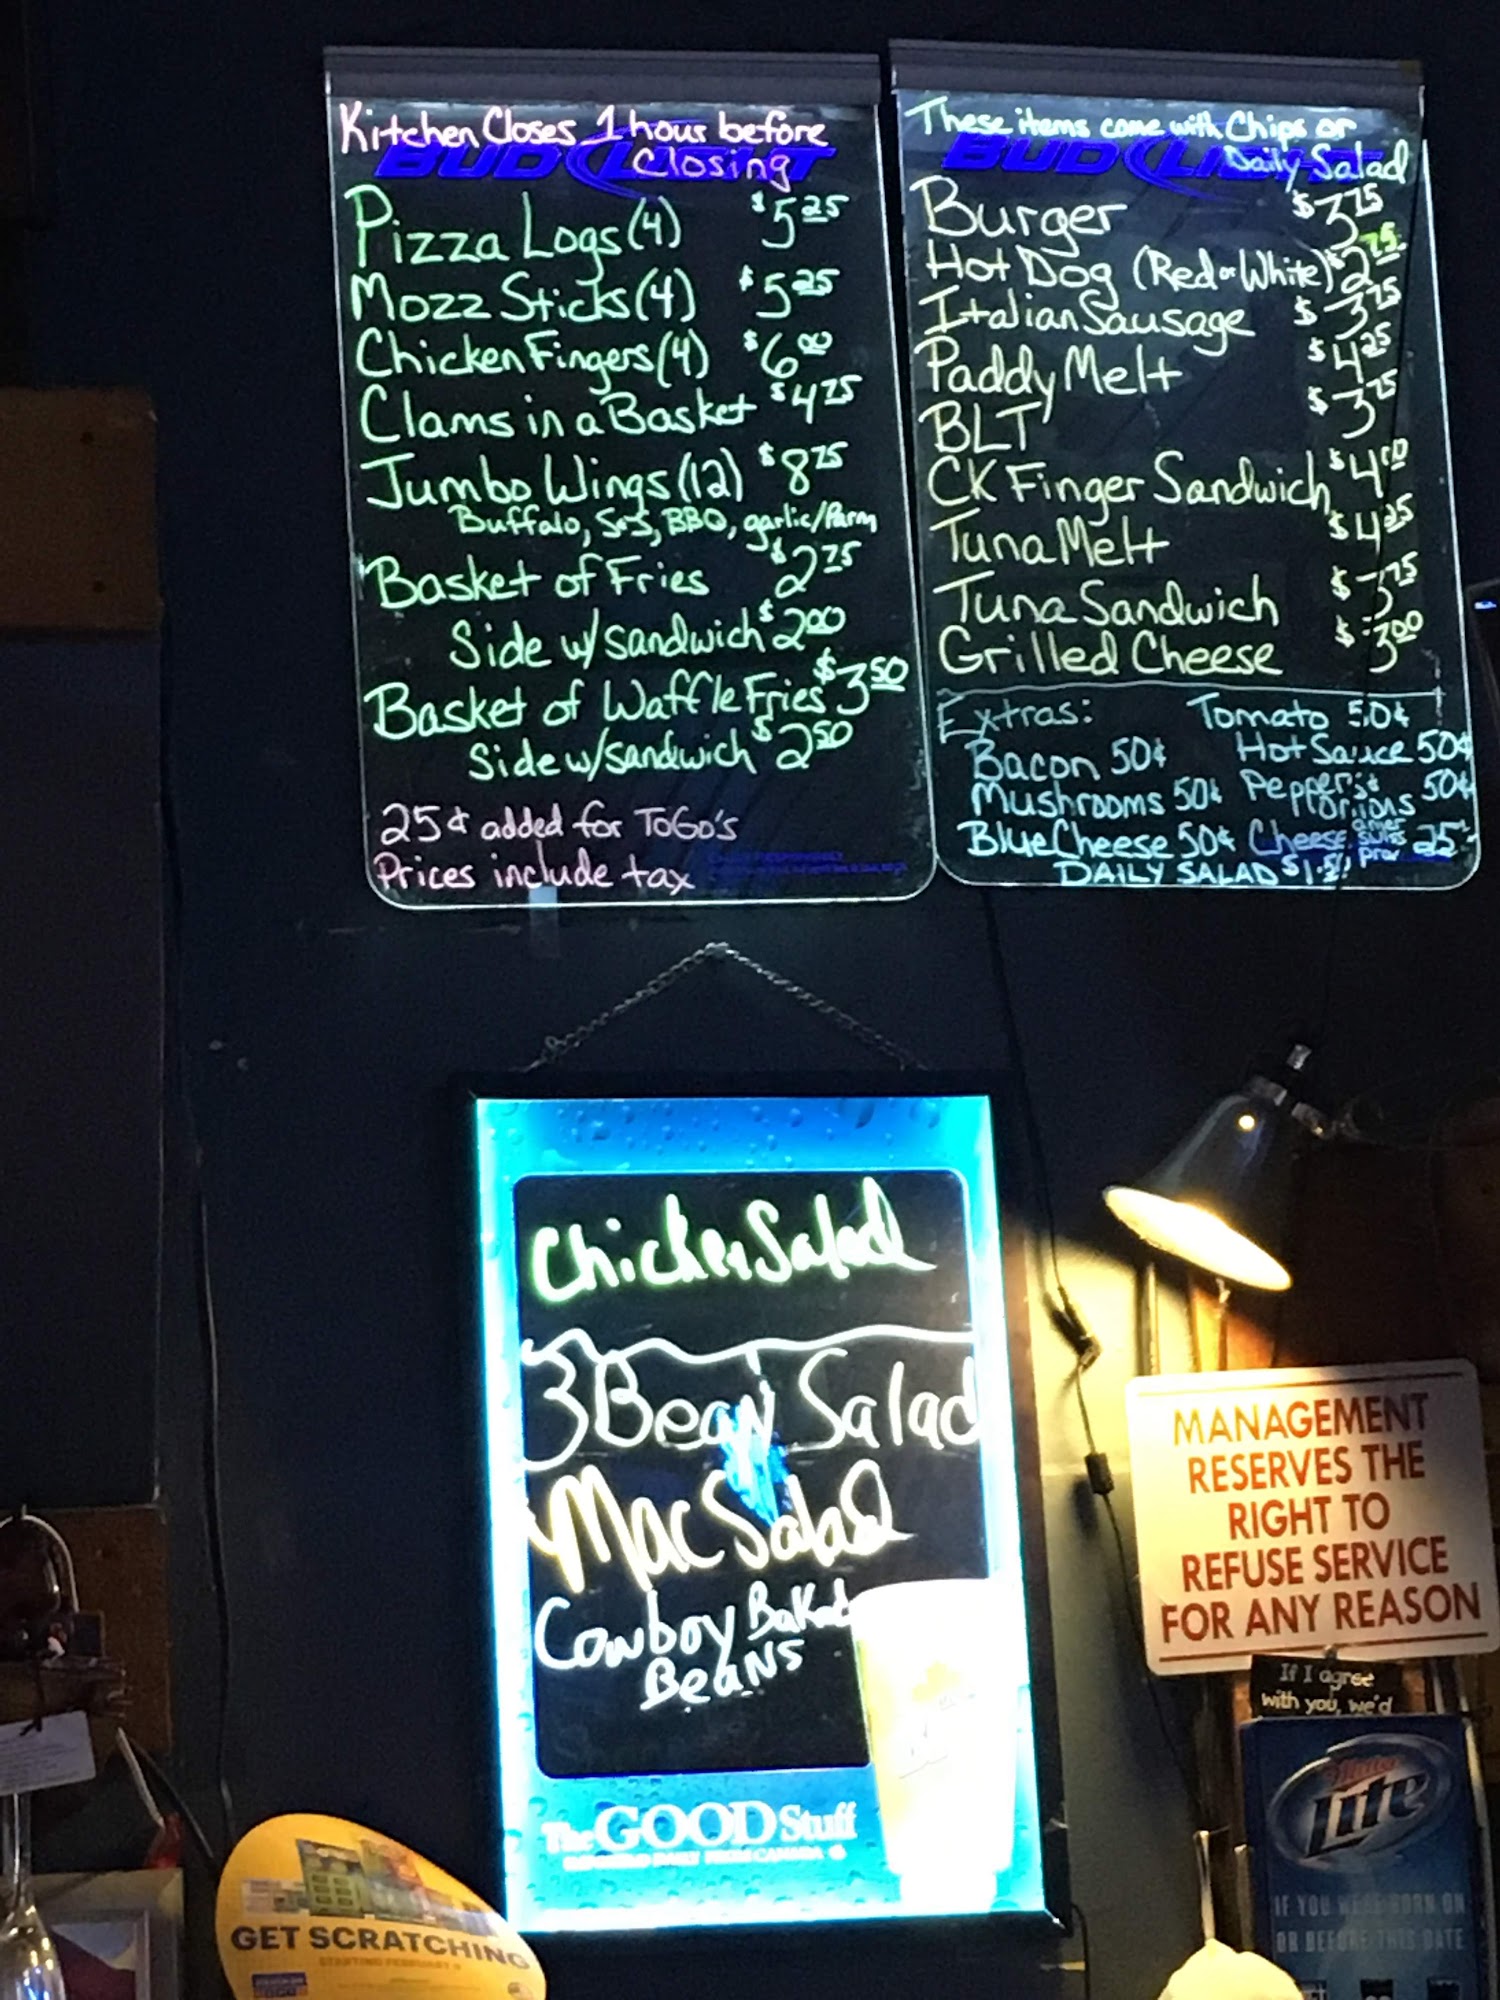 Kitchen Closes 1 hour before
Closing
BUD LIGHT
Pizza Logs (4) $5 25
Mozz Sticks (4) $5 25
Chicken Fingers (4) $6 00
Clams in a Basket $4 75
Jumbo Wings (12) $8 75
Buffalo, S+S, BBQ, garlic/Parm
Basket of Fries $2 75
Side w/ sandwich $2 00
Basket of Waffle Fries $3 50
Side w/ sandwich $2 50
25¢ added for ToGo's
Prices include tax
These items come with Chips or
Daily Salad
BUD LIGHT
Burger $3 75
Hot Dog (Red or White) $2 75
Italian Sausage $3 75
Paddy Melt $4 25
BLT $3 75
CK Finger Sandwich $4 00
Tuna Melt $4 25
Tuna Sandwich $3 75
Grilled Cheese $3 00
Extras: Tomato 50¢
Bacon 50¢ Hot Sauce 50¢
Mushrooms 50¢ Peppers + Onions 50¢
Blue Cheese 50¢ Cheese amer swiss prov 25¢
DAILY SALAD
Chicken Salad
3 Bean Salad
Mac Salad
Cowboy Baked
Beans
The GOOD Stuff
MANAGEMENT
RESERVES THE
RIGHT TO
REFUSE SERVICE
FOR ANY REASON
If I agree
with you, we'd
Miller
Lite
IF YOU WERE BORN ON
OR BEFORE THIS DATE
GET SCRATCHING